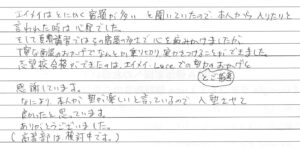 エイメイはとにかく宿題が多い と聞いていたので 本人から入りたいと
言われた時は 心配でした。
そして 夏期講習では その宿題の多さで 心を痛みかけましたが
丁寧な面談のおかげで なんとか 乗り切り 続けることができました。
志望校合格ができたのは、エイメイ、Laceでの 努力のおかげと
とご指導
感謝しています。
なにより、本人が 塾が楽しいと言っているので 入塾させて
良かったと思っています。
ありがとうございました。
(高等部は 検討中です。)